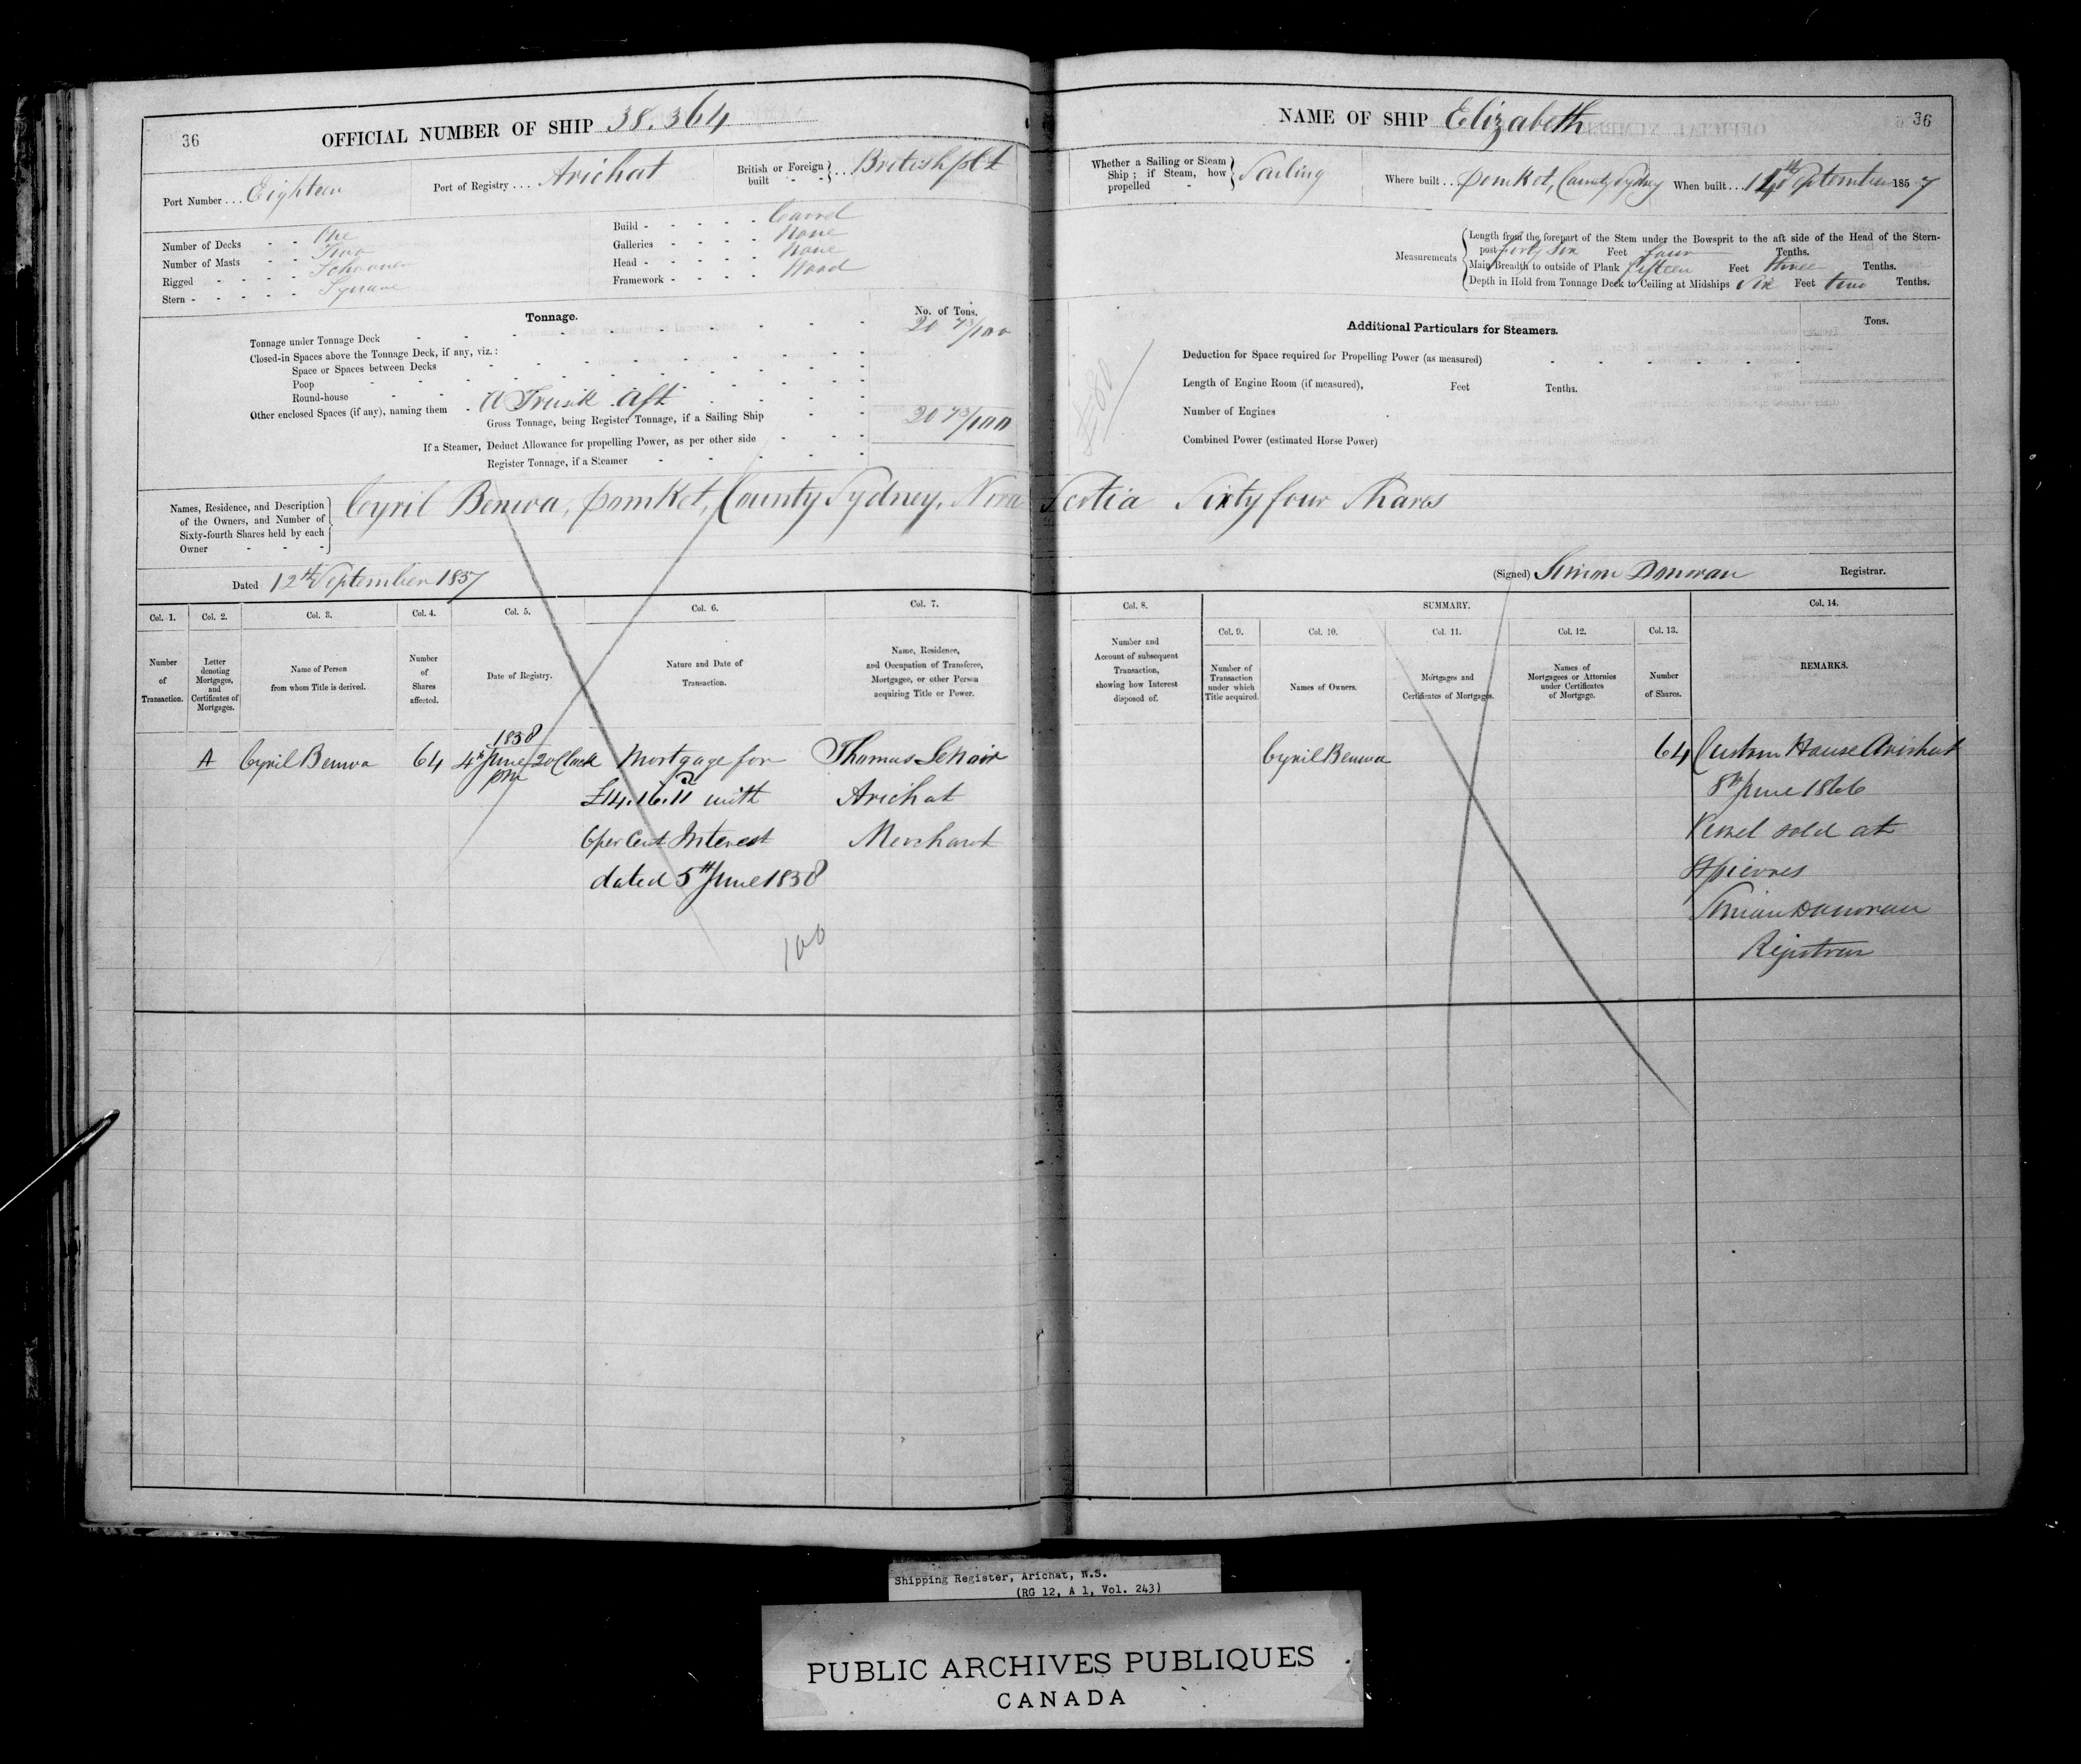 36
OFFICIAL NUMBER OF SHIP 38.364
Port Number... Eighteen
Port of Registry.... Arichat
British or Foreign built - - } ... British plt
Number of Decks - - One
Number of Masts - - Two
Rigged - - - - Schooner
Stern - - - - - Square
Build - - - - - Carvel
Galleries - - - - None
Head - - - - - None
Framework - - - - Wood
Tonnage.
No. of Tons.
Tonnage under Tonnage Deck 20 73/100
Closed-in Spaces above the Tonnage Deck, if any, viz.:
Space or Spaces between Decks
Poop
Round-house
Other enclosed Spaces (if any), naming them - A Trunk Aft
Gross Tonnage, being Register Tonnage, if a Sailing Ship 20 73/100
If a Steamer, Deduct Allowance for propelling Power, as per other side
Register Tonnage, if a Steamer
NAME OF SHIP Elizabeth
36
Whether a Sailing or Steam Ship; if Steam, how propelled - } Sailing
Where built... Pomket, County Sydney
When built... 1 4th September 1857
Measurements
Length from the forepart of the Stem under the Bowsprit to the aft side of the Head of the Stern-
post forty six Feet four Tenths.
Main Breadth to outside of Plank fifteen Feet three Tenths.
Depth in Hold from Tonnage Deck to Ceiling at Midships Six Feet two Tenths.
Additional Particulars for Steamers.
Tons.
Deduction for Space required for Propelling Power (as measured)
Length of Engine Room (if measured), Feet Tenths.
Number of Engines
Combined Power (estimated Horse Power)
Names, Residence, and Description
of the Owners, and Number of
Sixty-fourth Shares held by each
Owner - - -
Cyril Benwa, Pomket, County Sydney, Nova Scotia Sixty four Shares
Dated 12th September 1857
(Signed) Simon Donovan Registrar.
Col. 1.
Number of Transaction.
Col. 2.
Letter denoting Mortgages, and Certificates of Mortgages.
Col. 3.
Name of Person from whom Title is derived.
Col. 4.
Number of Shares affected.
Col. 5.
Date of Registry.
Col. 6.
Nature and Date of Transaction.
Col. 7.
Name, Residence, and Occupation of Transferee, Mortgagee, or other Person acquiring Title or Power.
Col. 8.
Number and Account of subsequent Transaction, showing how Interest disposed of.
SUMMARY.
Col. 9.
Number of Transaction under which Title acquired.
Col. 10.
Names of Owners.
Col. 11.
Mortgages and Certificates of Mortgages.
Col. 12.
Names of Mortgagees or Attornies under Certificates of Mortgage.
Col. 13.
Number of Shares.
Col. 14.
REMARKS.
A
Cyril Benwa
64
1858
4th June 2 oClock
pm
Mortgage for
£14.16.11 with
6 per Cent Interest
dated 5th June 1858
100
Thomas Lenoir
Arichat
Merchant
Cyril Benwa
64
Custom House Arichat
8th June 1866
Vessel sold at
St pierres
Simon Donovan
Registrar
Shipping Register, Arichat, N.S.
(RG 12, A 1, Vol. 243)
PUBLIC ARCHIVES PUBLIQUES
CANADA